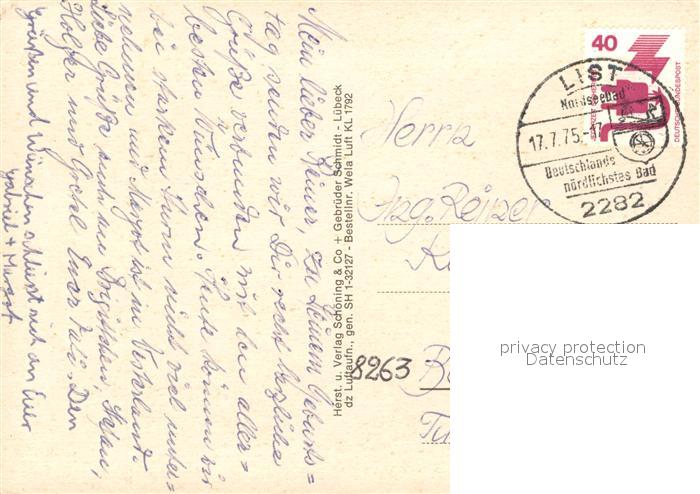 Mein lieber Reiner, zu Deinem Geburts=
tag senden wir Dir recht herzliche
Grüße verbunden mit den aller=
besten Wünschen. Heute können wir
bei starkem Sturm nicht viel unter=
nehmen und Margot ist in Westerland.
Liebe Grüße auch an Brigittchen, Stefan,
Holger und Gisel Euer Jair Den
Grüßen und Wünschen schliesst sich an Euer
Gabriel + Margot
Herst. u. Verlag Schöning & Co + Gebrüder Schmidt - Lübeck
dz Luftaufn., gen. SH 1-32127 - Bestellnr. Wela Luft KL 1792
40
DEUTSCHE BUNDESPOST
LIST
Nordseebad
17.7.75.-17
Deutschlands
nördlichstes Bad
2282
Herrn
Ing. Reiner
8263
privacy protection
Datenschutz